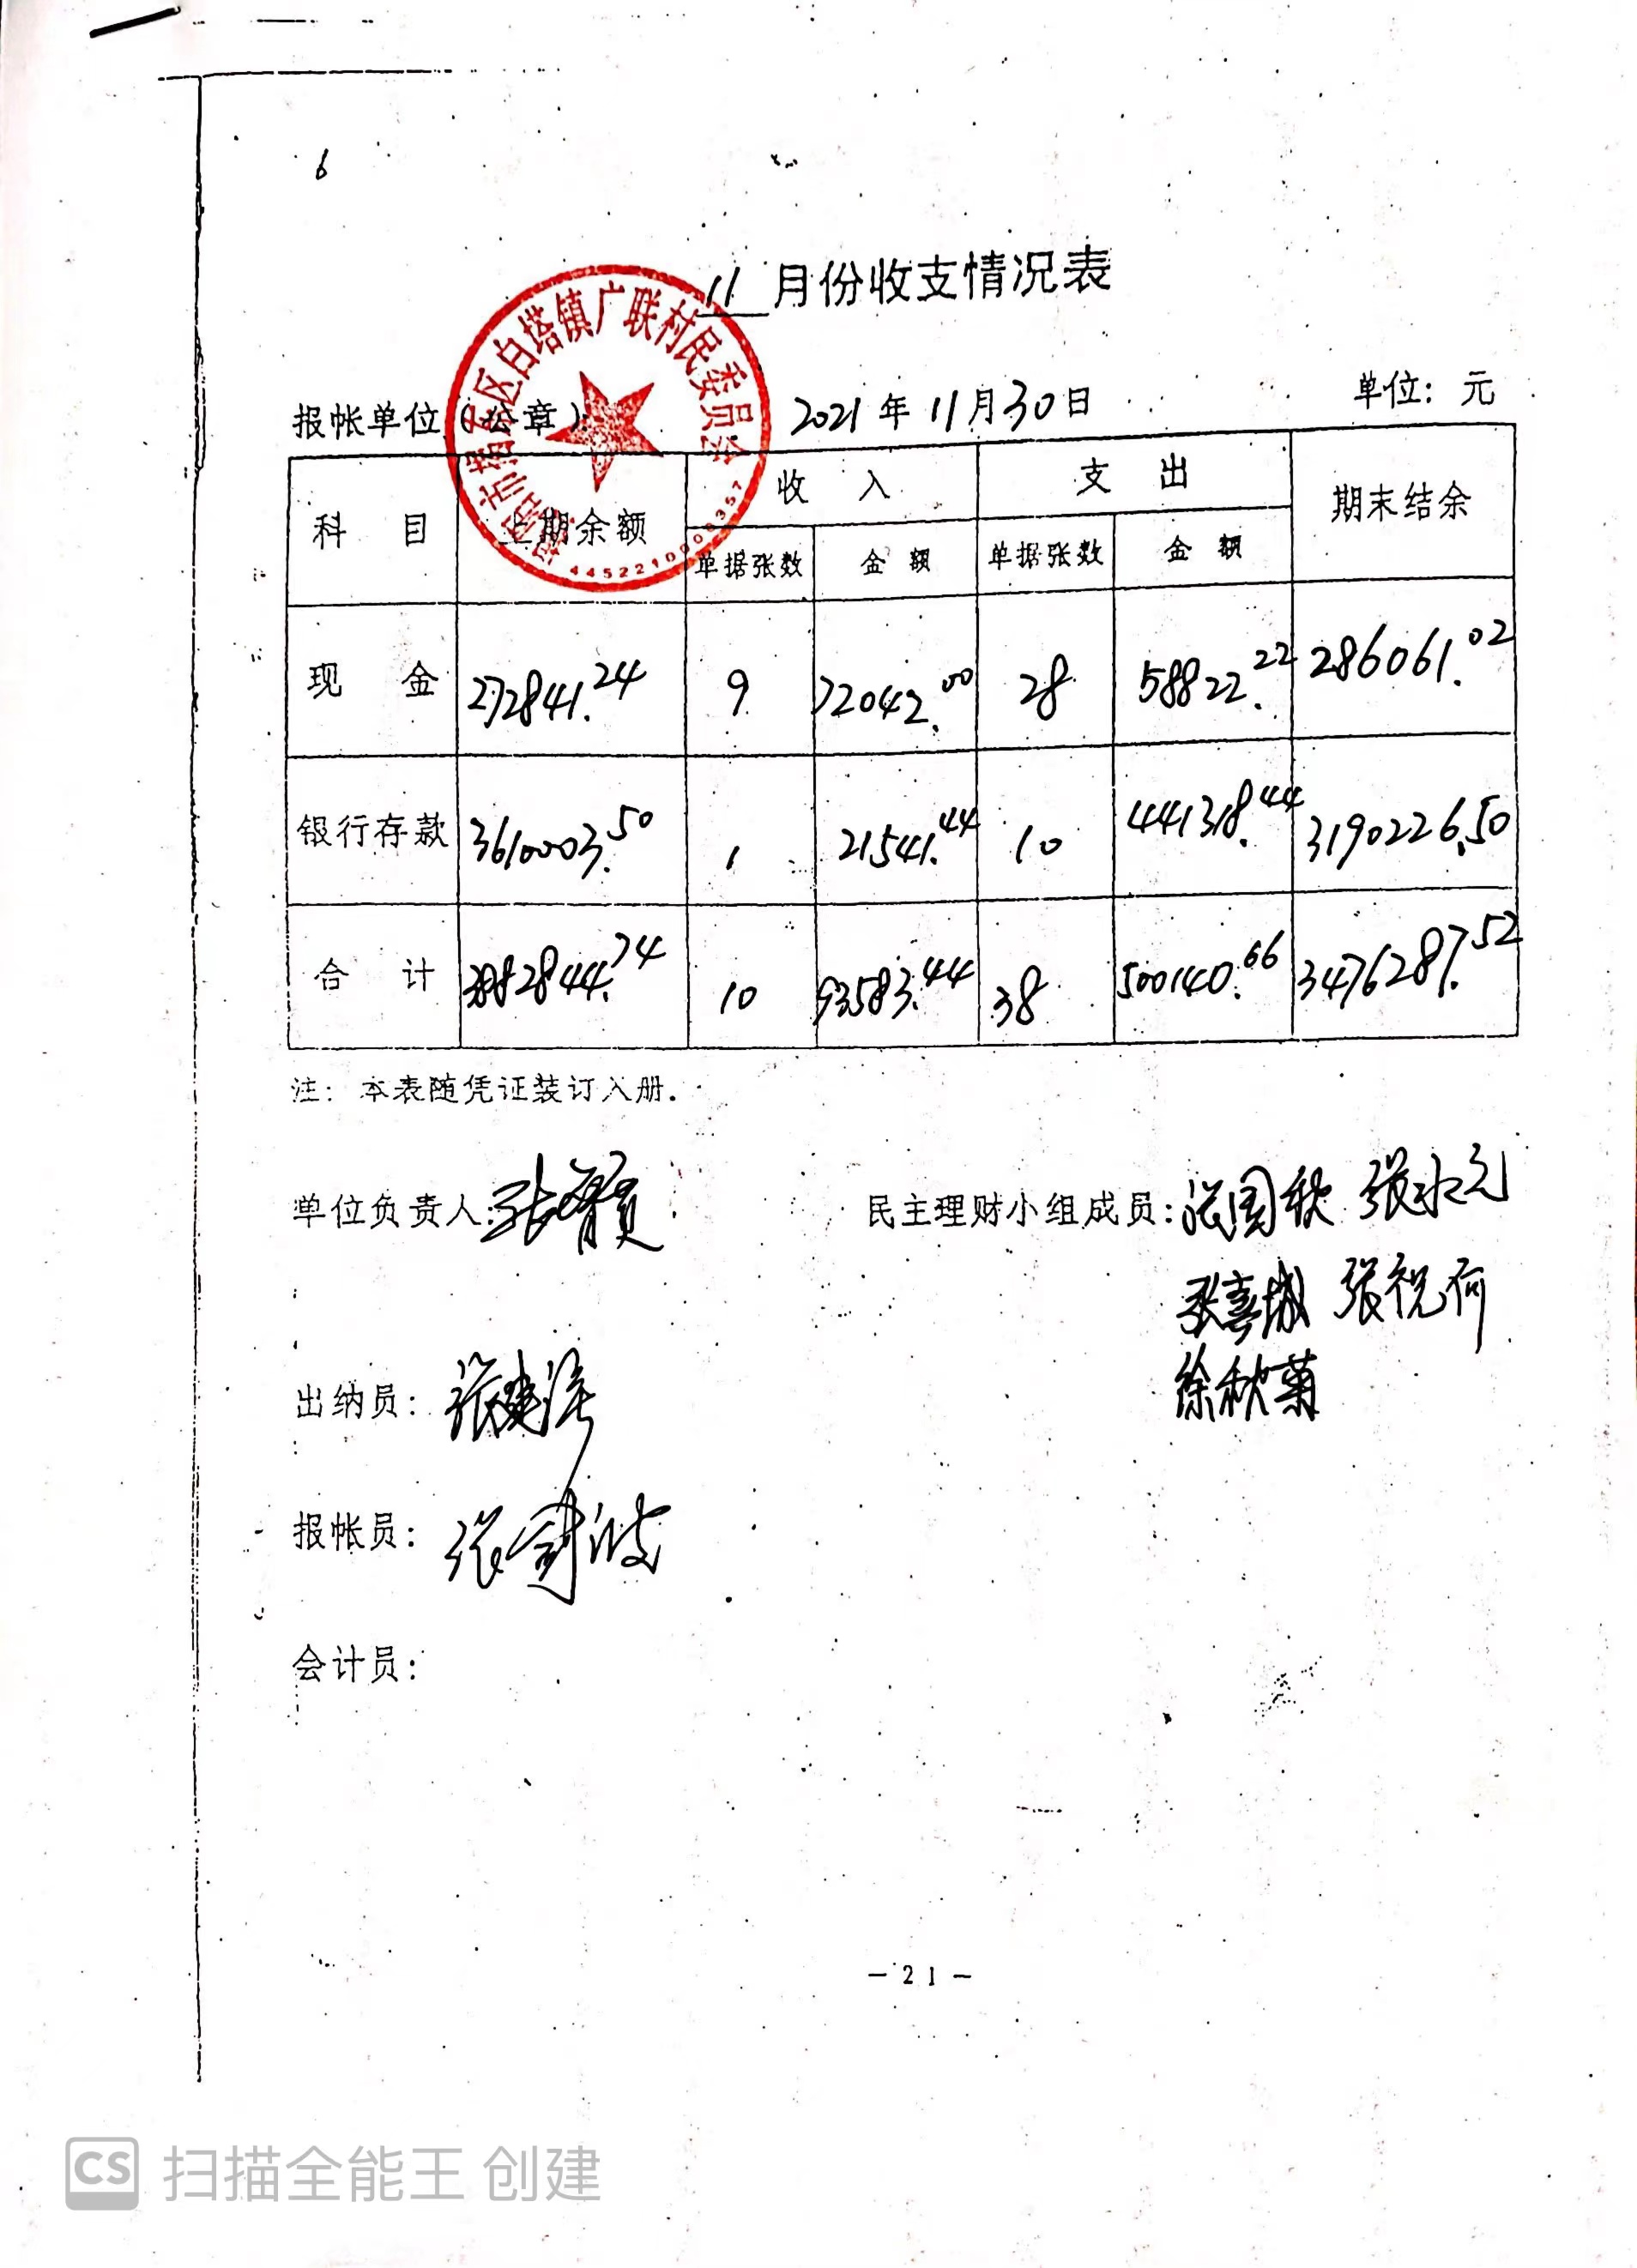 6
11 月份收支情况表
揭阳市揭东区白塔镇广联村民委员会
4452210000357
报帐单位(公章): 2021年11月30日 单位: 元
科 目 上期余额 收 入 支 出 期末结余
单据张数 金 额 单据张数 金 额
现 金 272841.24 9 72042.00 28 58822.22 286061.02
银行存款 3610003.50 1 21541.44 10 441318.44 3190226.50
合 计 3882844.74 10 93583.44 38 500140.66 3476287.52
注: 本表随凭证装订入册.
单位负责人: 民主理财小组成员: 张国秋 张永元
张喜城 张祝荷
徐秋菊
出纳员: 张建泽
报帐员: 张剑波
会计员:
-21-
CS 扫描全能王 创建